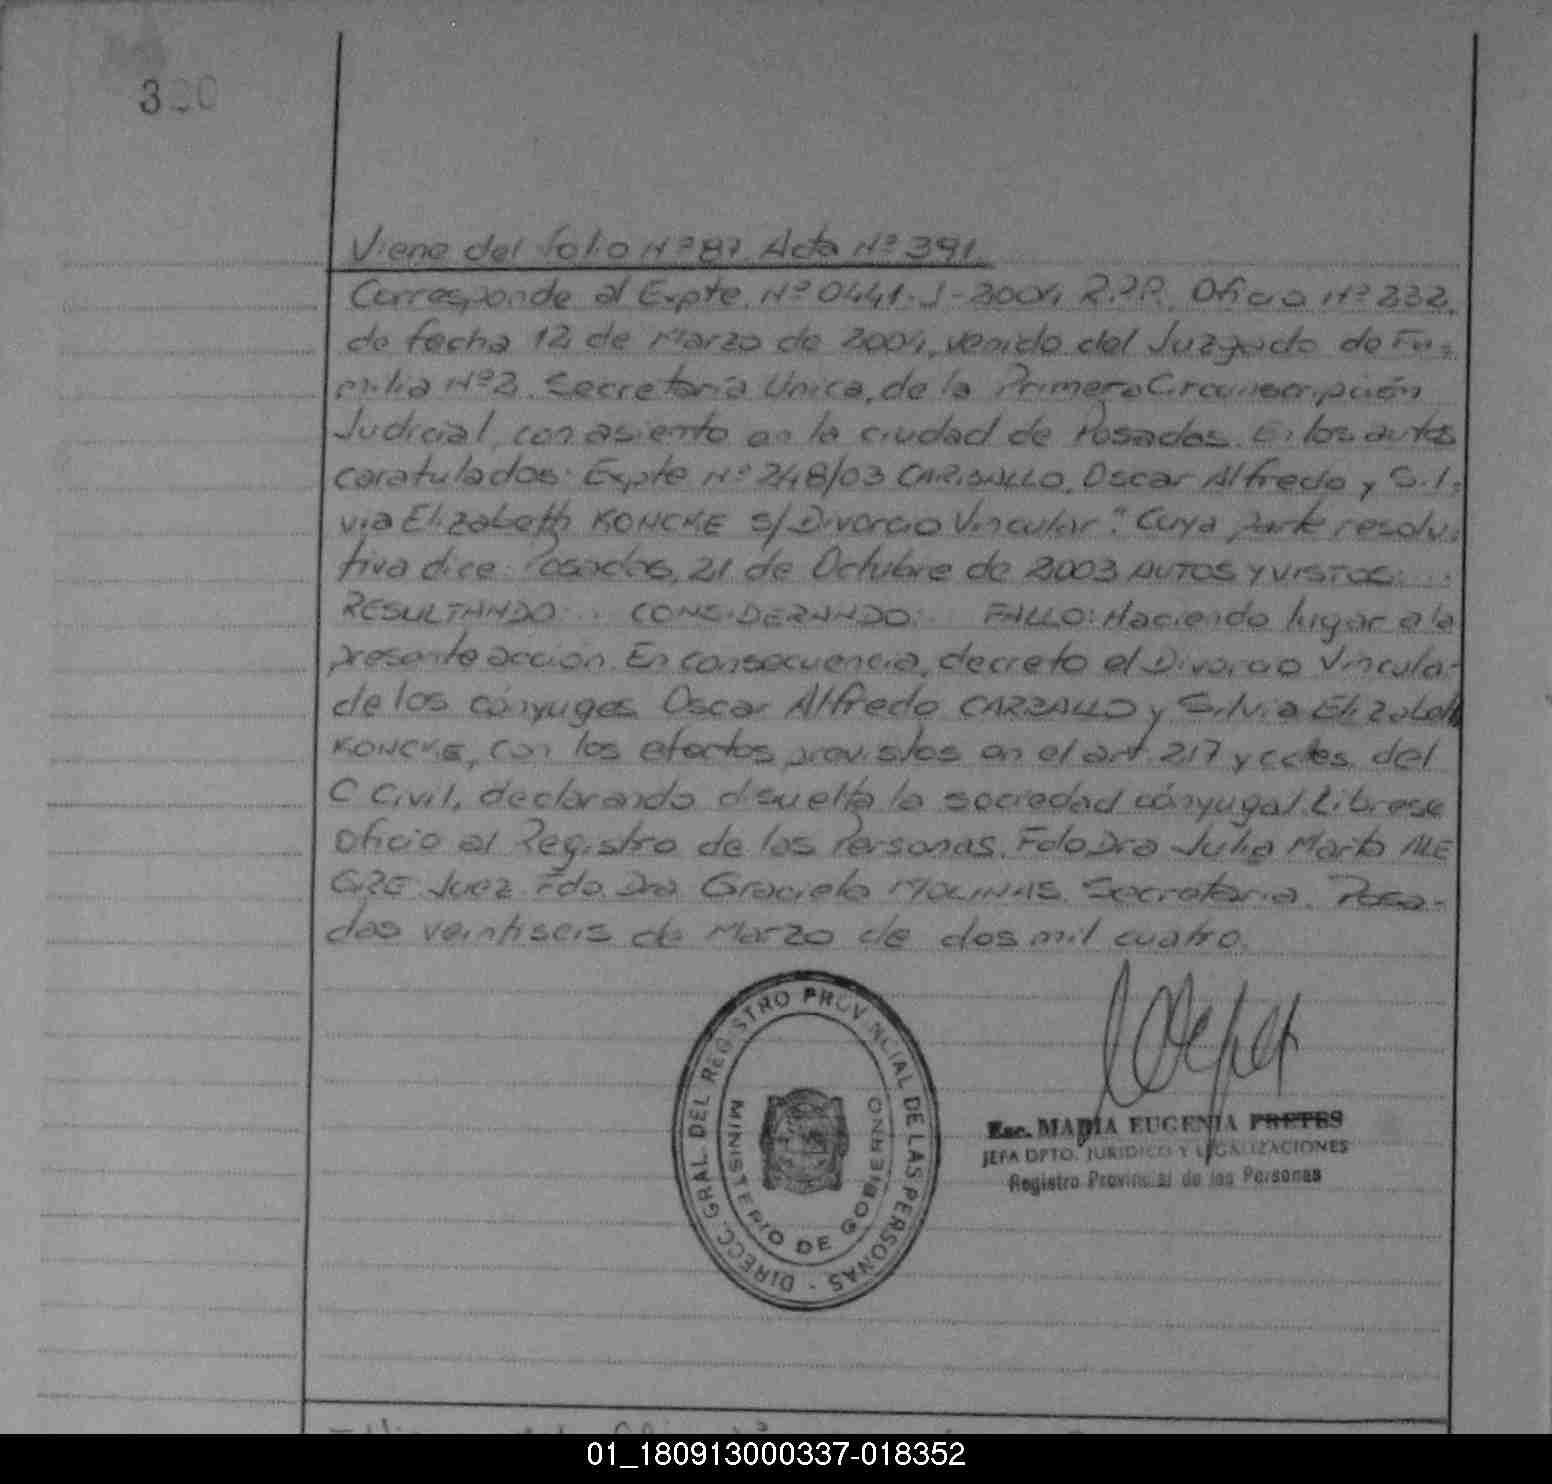 300
Viene del folio Nº 87. Acta Nº 391.
Corresponde al Expte. Nº 0441-J-2004 R.P.P. Oficio Nº 232,
de fecha 12 de Marzo de 2004, venido del Juzgado de Fa-
milia Nº 2. Secretaría Unica, de la Primera Circunscripción
Judicial, con asiento en la ciudad de Posadas. En los autos
caratulados: Expte Nº 248/03 CARBALLO, Oscar Alfredo y Sil-
via Elizabeth KONCKE s/ Divorcio Vincular". Cuya parte resolu-
tiva dice: Posadas, 21 de Octubre de 2003 AUTOS Y VISTOS: ...
RESULTANDO: ... CONSIDERANDO: ... FALLO: Haciendo lugar a la
presente acción. En consecuencia, decreto el Divorcio Vincular
de los cónyuges Oscar Alfredo CARBALLO y Silvia Elizabeth
KONCKE, con los efectos previstos en el art. 217 y cctes. del
C Civil, declarando disuelta la sociedad cónyugal. Librese
oficio al Registro de las Personas. Fdo Dra Julia Marta ALE
GRE Juez. Fdo. Dra. Graciela MOLINAS. Secretaria. Posa-
das veintiseis de Marzo de dos mil cuatro.
DIRECC. GRAL. DEL REGISTRO PROVINCIAL DE LAS PERSONAS -
MINISTERIO DE GOBIERNO
Esc. MARIA EUGENIA
JEFA DPTO. JURIDICO Y LEGALIZACIONES
Registro Provincial de las Personas
01_180913000337-018352